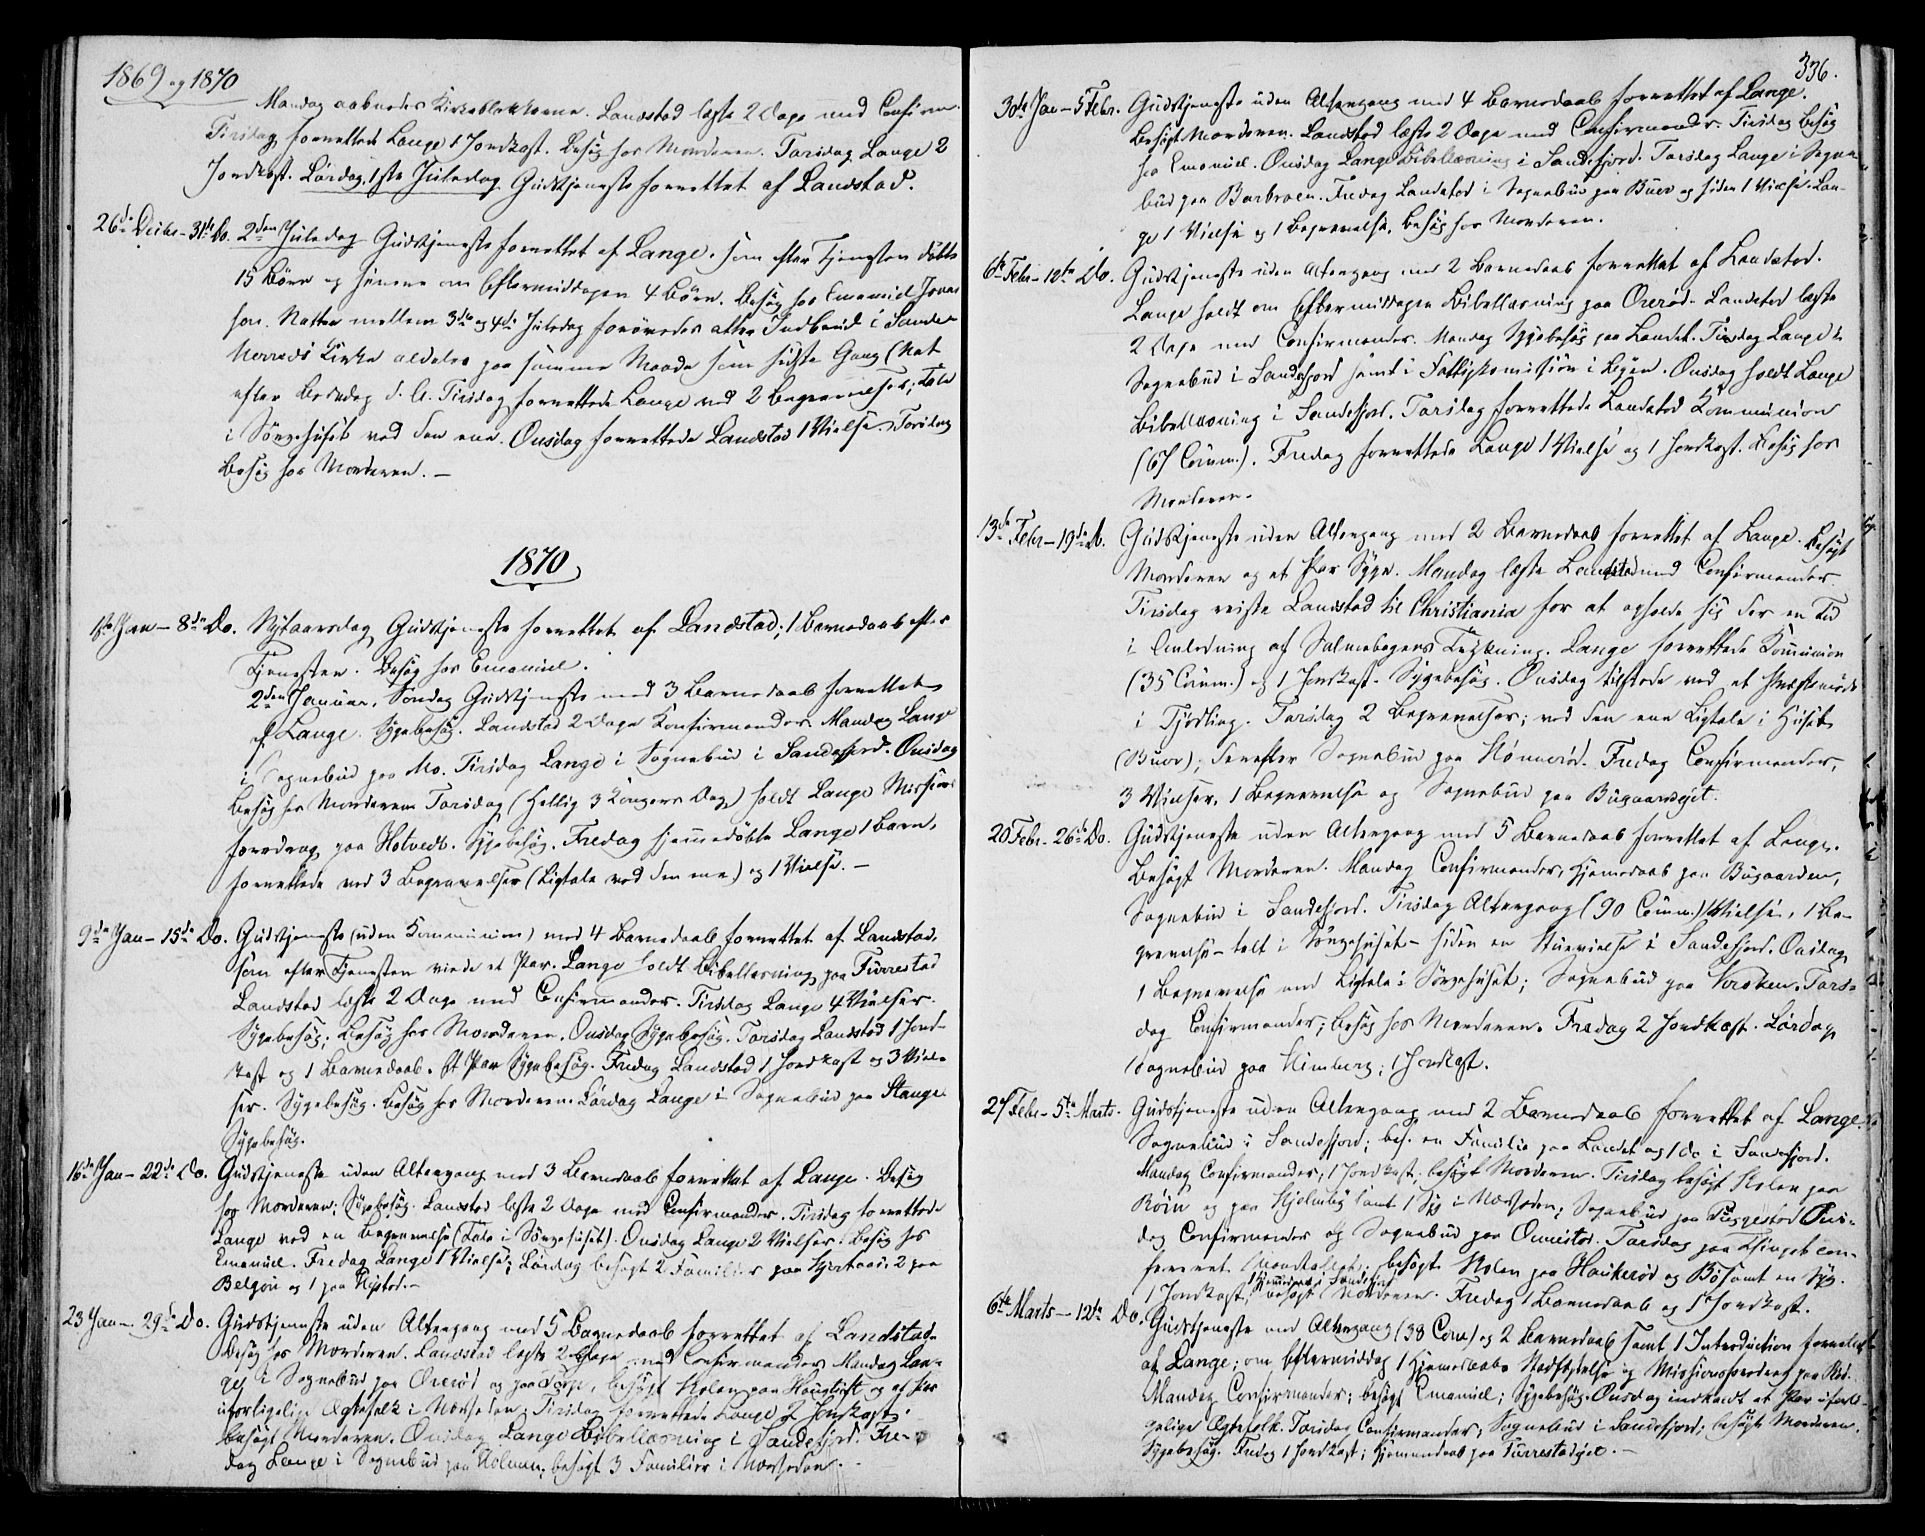 1869 og 1870
Mandag aabnedes Kirkeblokkerne. Landstad læste 2 Dage med Confirm.
Tirsdag forrettede Lange 1 Jordkast. Besøg hos Morderen. Torsdag Lange 2
Jordkast. Lördag, 1ste Juledag Gudstjeneste forrettet af Landstad.
26de Decbr - 31te Do. 2den Juledag Gudstjeneste forrettet af Lange, som efter Tjenesten döbte
15 Börn og senere om Eftermiddagen 4 Börn. Besøg hos Emanuel Jonas
sen. Natten mellem 3die og 4de Juledag forövedes atter Indbrud i Sande-
herreds Kirke aldeles paa samme Maade som sidste Gang (Nat
efter Bededag d. A. Tirsdag forrettede Lange ved 2 Begravelser; Tale
i Sörgehuset ved den ene. Onsdag forrettede Landstad 1 Vielse. Torsdag
Besøg hos Morderen. -
1870
1ste Jan - 8de Do. Nytaarsdag Gudstjeneste forrettet af Landstad; 1 Barnedaab efter
Tjenesten. Besøg hos Emanuel.
2den Januar, Söndag Gudstjeneste med 3 Barnedaab forrettet
af Lange. Sygebesøg. Landstad 2 Dage Konfirmander. Mandag Lange
i Sognebud paa Mo. Tirsdag Lange i Sognebud i Sandefjord. Onsdag
Besøg hos Morderen. Torsdag (Hellig 3 Kongers Dag) holdt Lange Missions
foredrag paa Hotvedt. Sygebesøg. Fredag hjemmedöbte Lange 1 Barn,
forrettede ved 3 Begravelser (Ligtale ved den ene) og 1 Vielse. -
9de Jan - 15de Do. Gudstjeneste (uden Kommunion) med 4 Barnedaab forrettet af Landstad,
som efter Tjenesten viede et Par. Lange holdt Bibellæsning paa Furrestad
Landstad læste 2 Dage med Confirmander. Tirsdag Lange 4 Vielser.
Sygebesøg; Besøg hos Morderen. Onsdag Sygebesøg. Torsdag Landstad 1 Jord-
kast og 1 Barnedaab. Et Par Sygebesøg. Fredag Landstad 1 Jordkast og 3 Viel-
ser. Sygebesøg. Besøg hos Morderen. Lördag Lange i Sognebud paa Stange
Sygebesøg.
16de Jan - 22de Do. Gudstjeneste uden Altergang med 3 Barnedaab forrettet af Lange. Besøg
hos Morderen; Sygebesøg. Landstad læste 2 Dage med Confirmander. Tirsdag forrettede
Lange ved en Begravelse (Tale i Sörgehuset). Onsdag Lange 2 Vielser. Besøg hos
Emanuel. Fredag Lange 1 Vielse; Lördag besøgt 2 Familier paa Hjertaas, 2 paa
og 1 paa Nystad. -
23 Jan - 29de Do. Gudstjeneste uden Altergang med 5 Barnedaab forrettet af Landstad.
Besøg hos Morderen. Landstad læste 2 Dage med Confirmander. Mandag Lan-
ge i Sognebud paa Orerød og paa Torp, besøgt Skolen paa Haugtuft og et Par
uforligelige Ægtefolk i Næsheden; Tirsdag forrettede Lange 2 Jordkast.
besøgt Morderen. Onsdag Lange Bibellæsning i Sandefjord. Fre-
dag Lange i Sognebud paa Holmen; besøgt 3 Familier i Næsheden. -
336.
30de Jan - 5 Febr. Gudstjeneste uden Altergang med 4 Barnedaab forrettet af Lange.
Besøgt Morderen. Landstad læste 2 Dage med Confirmander. Tirsdag Besøg
hos Emanuel. Onsdag Lange Bibellæsning i Sandefjord. Torsdag Lange i Sogne-
bud paa Barbroen. Fredag Landstad i Sognebud paa Buer og siden 1 Vielse. Lan-
ge 1 Vielse og 1 Begravelse. Besøg hos Morderen.
6te Febr - 12te Do. Gudstjeneste uden Altergang med 2 Barnedaab forrettet af Landstad.
Lange holdt om Eftermiddagen Bibellæsning paa Orerød. Landstad læste
2 Dage med Confirmander. Mandag Sygebesøg paa Landet. Tirsdag Lange i
Sognebud i Sandefjord samt i Fattigkomission i Byen. Onsdag holdt Lange
Bibellæsning i Sandefjord. Torsdag forrettede Landstad Kommunion
(67 Comm.). Fredag forrettede Lange 1 Vielse og 1 Jordkast. Besøg hos
Morderen.
13de Febr - 19de Do. Gudstjeneste uden Altergang med 2 Barnedaab forrettet af Lange. Besøgt
Morderen og et Par Syge. Mandag læste Landstad med Confirmander
Tirsdag reiste Landstad til Christiania for at opholde sig der en Tid
i Anledning af Salmebogens Trykning. Lange forrettede Kommunion
(35 Comm.) og 1 Jordkast. Sygebesøg. Onsdag tilstede ved et Præstemöde
i Tjödling. Torsdag 2 Begravelser; ved den ene Ligtale i Huset
(Buer); derefter Sognebud paa Nønnerød. Fredag Confirmander,
3 Vielser, 1 Begravelse og Sognebud paa Bugaardsejet.
20 Febr - 26de Do. Gudstjeneste uden Altergang med 5 Barnedaab forrettet af Lange.
Besøgt Morderen. Mandag Confirmander, Hjemedaab paa Bugaarden,
Sognebud i Sandefjord. Tirsdag Altergang (90 Comm.) 1 Vielse, 1 Be-
gravelse - talt i Sörgehuset - siden en Huusvielse i Sandefjord. Onsdag
1 Begravelse med Ligtale i Sörgehuset; Sognebud paa Kroken. Tors-
dag Confirmander; besøg hos Morderen. Fredag 2 Jordkast. Lördag
1 Sognebud paa Himberg; 1 Jordkast.
27 Febr - 5te Marts. Gudstjeneste uden Altergang med 2 Barnedaab forrettet af Lange.
Sognebud i Sandefjord; bes. en Familie paa Landet og 1 do i Sandefjord.
Mandag Confirmander, 1 Jordkast; besøgt Morderen. Tirsdag besøgt Skolen paa
og paa samt 1 Syg i Næsheden; Sognebud paa Ons-
dag Confirmander og Sognebud paa Torsdag paa Thinget con-
fereret besøgt Skolen paa Haukerød og Bö samt en Syg.
1 Jordkast; besøgt Morderen. Fredag 1 Barnedaab og 1 Jordkast.
6te Marts - 12te Do. Gudstjeneste med Altergang (38 Com) og 2 Barnedaab samt 1 Introduction forrettet
af Lange; om Eftermiddag 1 Hjemedaabs Stadfæstelse og Missionsforedrag paa
Mandag Confirmander; besøgt Emanuel; Sygebesøg. Onsdag indkaldt et Par ufor-
lige Ægtefolk. Torsdag Confirmander; Sognebud i Sandefjord; besøgt Morderen.
Sygebesøg. Fredag 1 Jordkast; Hjemmedaab paa Furrestadejet. -